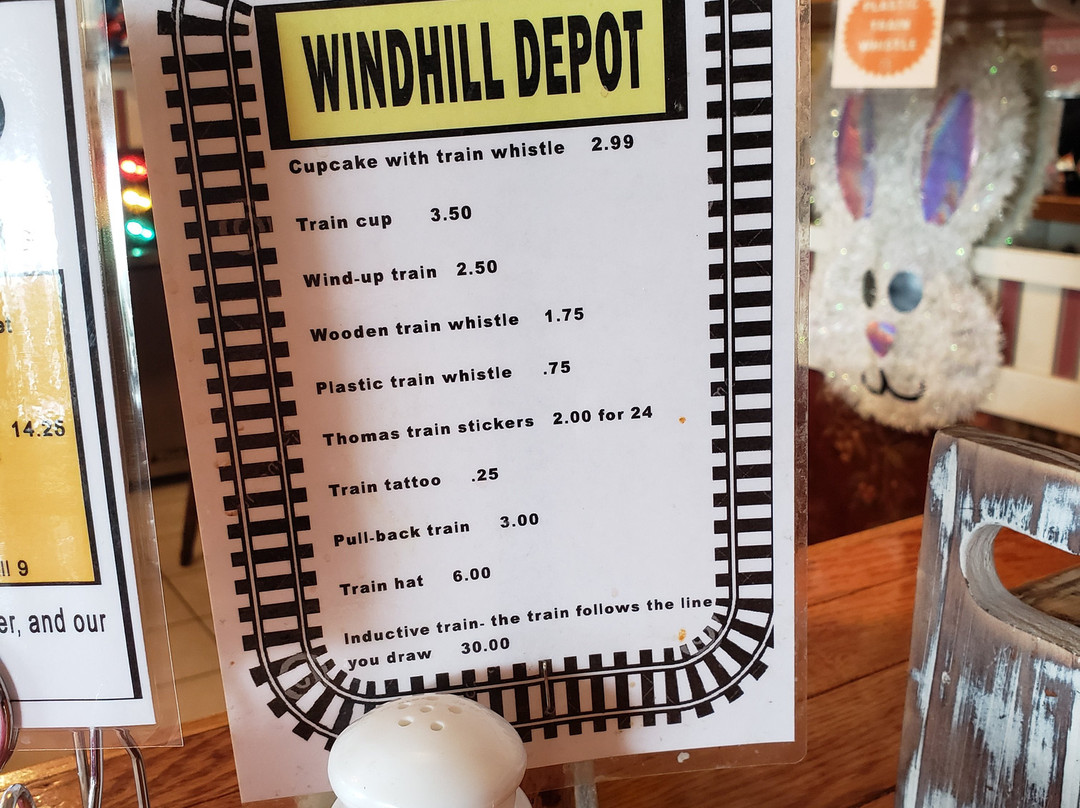 WINDHILL DEPOT
Cupcake with train whistle 2.99
Train cup 3.50
Wind-up train 2.50
Wooden train whistle 1.75
Plastic train whistle .75
Thomas train stickers 2.00 for 24
Train tattoo .25
Pull-back train 3.00
Train hat 6.00
Inductive train- the train follows the line
you draw 30.00
14.25
9
and our
PLASTIC
TRAIN
WHISTLE